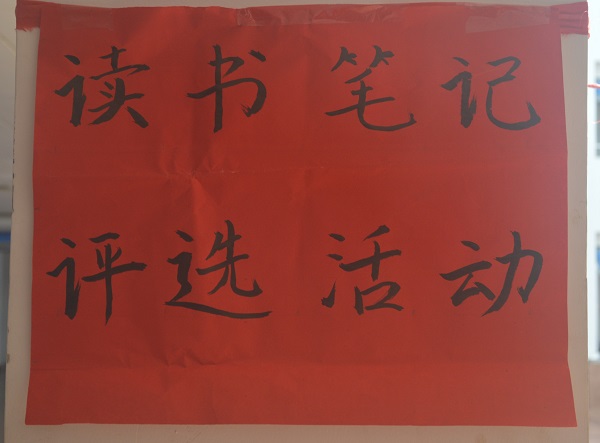 读书笔记
评选活动